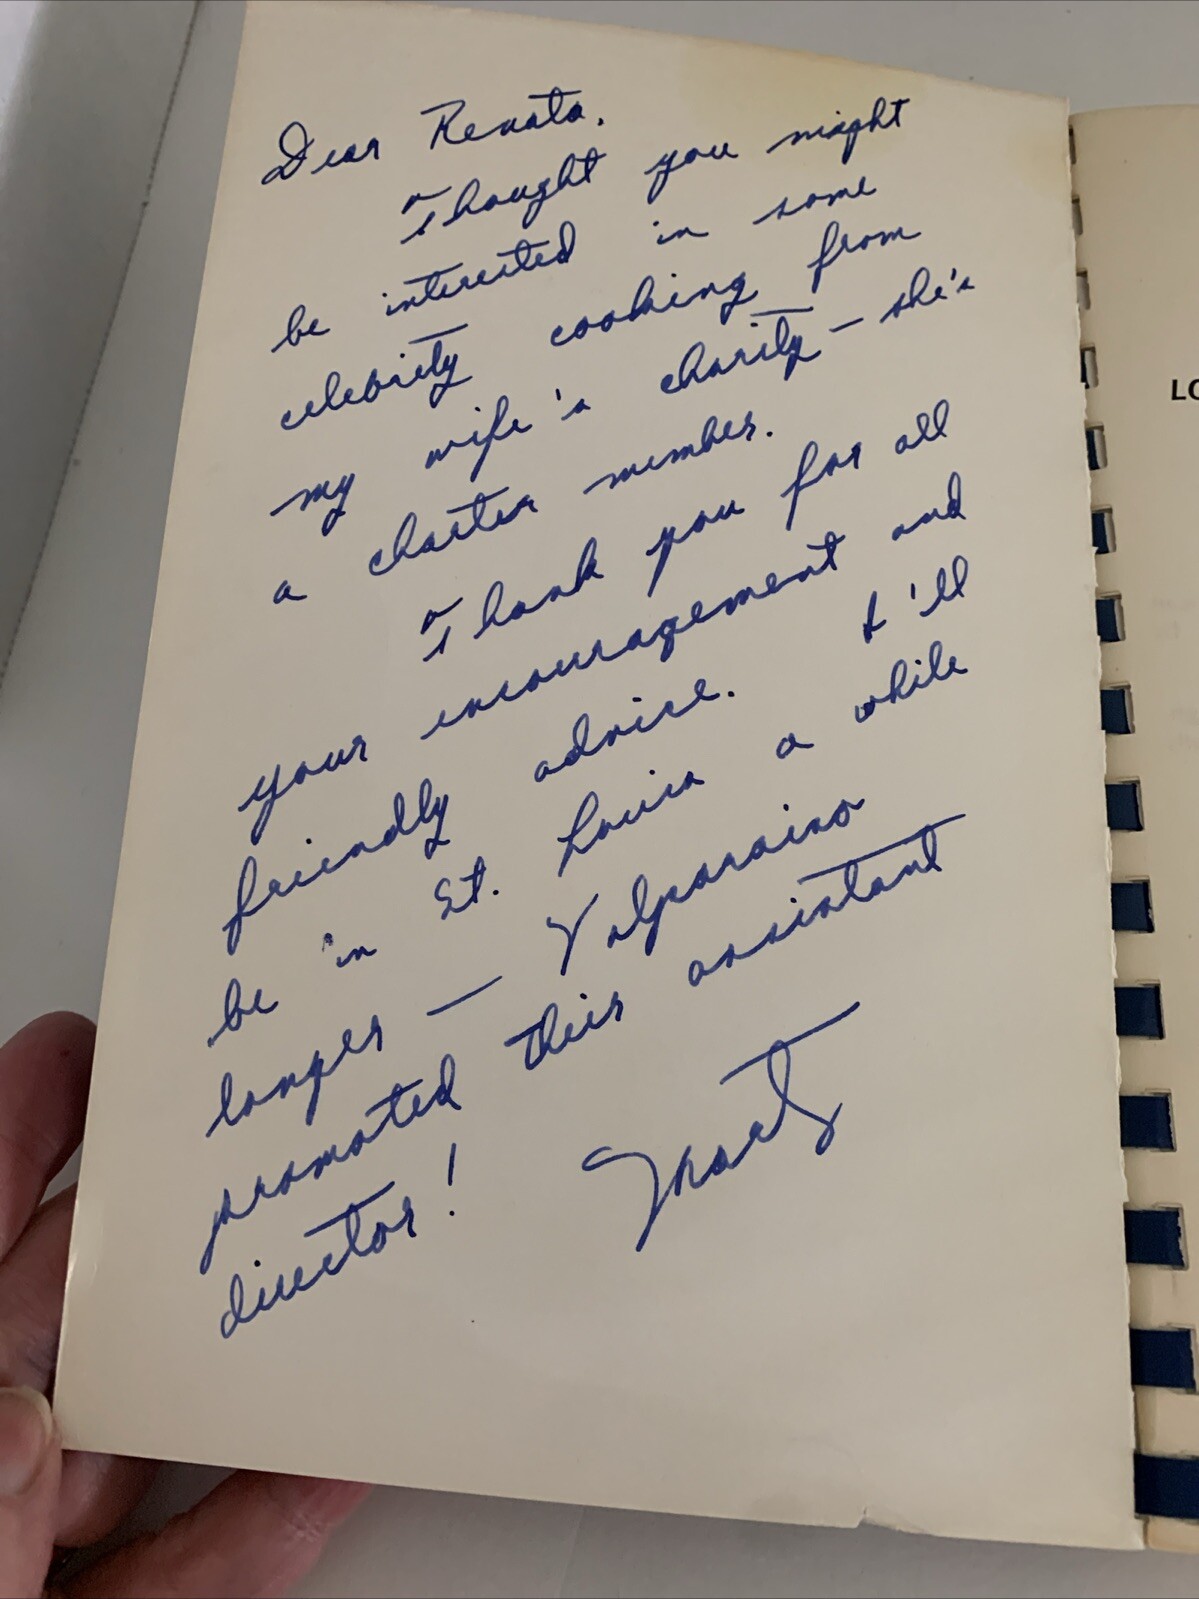 Dear Renata,
Thought you might
be interested in some
celebrity cooking from
my wife's charity – she's
a charter member.
Thank you for all
your encouragement and
friendly advice. I'll
be in St. Louis a while
longer — Valparaiso
promoted their assistant
director!
Marty
LO